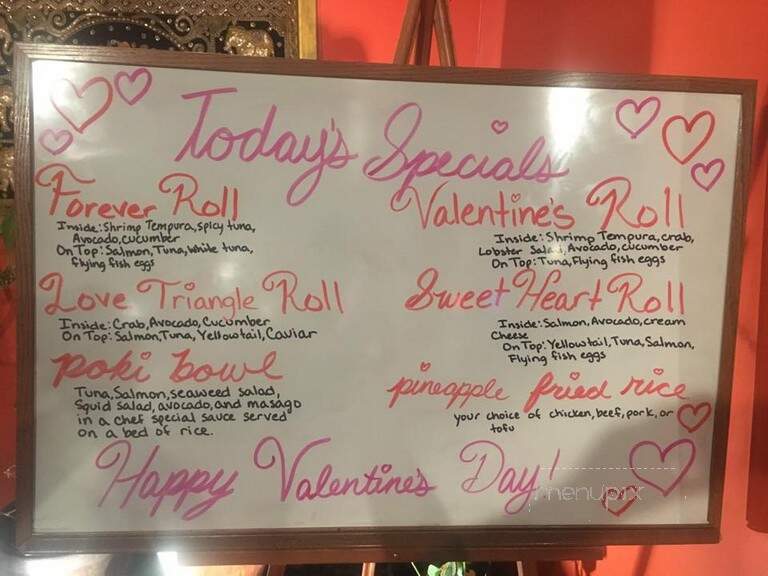 Today's Specials
Forever Roll
Inside: Shrimp Tempura, spicy tuna,
Avocado, cucumber
On Top: Salmon, Tuna, white tuna,
flying fish eggs
Valentine's Roll
Inside: Shrimp Tempura, crab,
Lobster Salad, Avocado, cucumber
On Top: Tuna, Flying fish eggs
Love Triangle Roll
Inside: Crab, Avocado, Cucumber
On Top: Salmon, Tuna, Yellowtail, Caviar
Sweet Heart Roll
Inside: Salmon, Avocado, cream
Cheese
On Top: Yellowtail, Tuna, Salmon,
Flying fish eggs
poki bowl
Tuna, Salmon, seaweed salad,
Squid salad, avocado, and masago
in a chef special sauce served
on a bed of rice.
pineapple fried rice
your choice of chicken, beef, pork, or
tofu
Happy Valentine's Day!
menupix